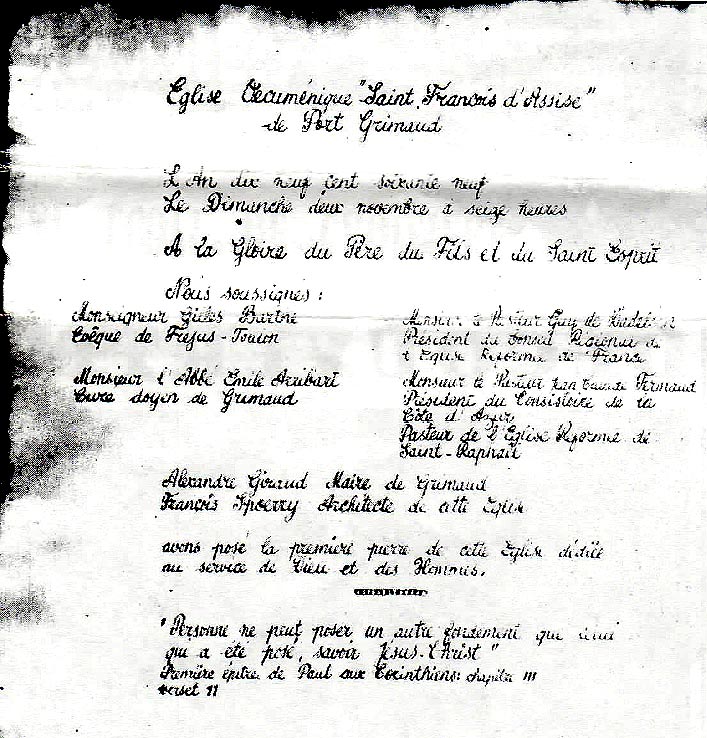 Eglise Œcuménique "Saint François d'Assise"
de Port Grimaud
L'An dix neuf cent soixante neuf
Le Dimanche deux novembre à seize heures
A la Gloire du Père du Fils et du Saint Esprit
Nous soussignés :
Monseigneur Gilles Barthe
Evêque de Fréjus-Toulon
Monsieur l'Abbé Emile Arribart
Curé doyen de Grimaud
Monsieur le Pasteur Guy de
Président du Conseil Régional de
l'Eglise Réformée de France
Monsieur le Pasteur Jean Claude Fermaud
Président du Consistoire de la
Côte d'Azur
Pasteur de l'Eglise Réformée de
Saint-Raphaël
Alexandre Giraud Maire de Grimaud
François Spoerry Architecte de cette Eglise
avons posé la première pierre de cette Eglise dédiée
au service de Dieu et des Hommes.
"Personne ne peut poser un autre fondement que celui
qui a été posé, savoir Jésus-Christ"
Première épître de Paul aux Corinthiens: chapitre III
verset 11